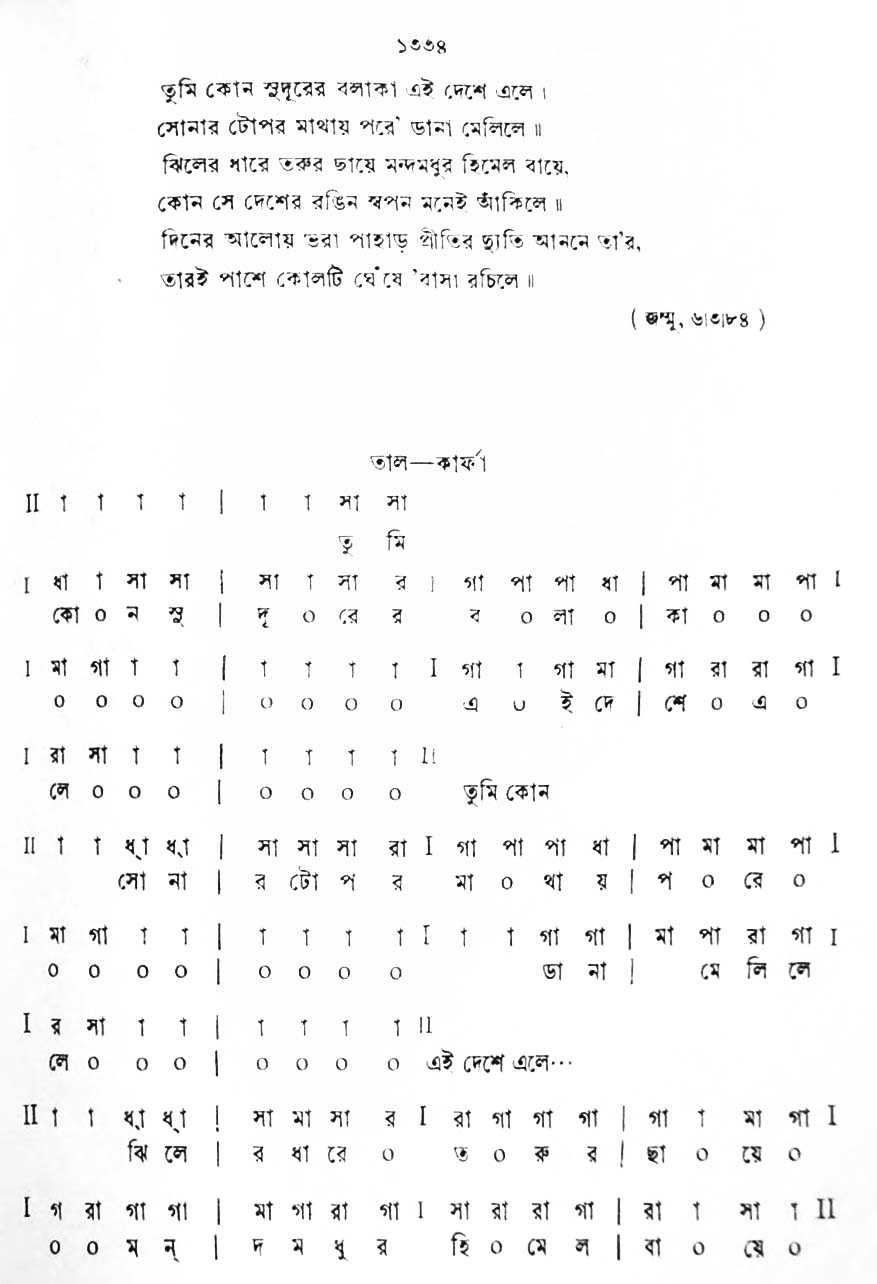 ১৩৩৪
তুমি কোন সুদূরের বলাকা এই দেশে এলে।
সোনার টোপর মাথায় পরে' ডানা মেলিলে॥
ঝিলের ধারে তরুর ছায়ে মন্দমধুর হিমেল বায়ে,
কোন সে দেশের রঙিন স্বপন মনেই আঁকিলে॥
দিনের আলোয় ভরা পাহাড় প্রীতির দ্যুতি আননে তা'র,
তারই পাশে কোলটি ঘেঁষে 'বাসা রচিলে॥
( জম্মু, ৬।৩।৮৪ )
তাল—কার্ফা
II া া া া | া া সা সা
তু মি
I ধা া সা সা | সা া সা র I গা পা পা ধা | পা মা মা পা I
কো ০ ন সু | দূ ০ রে র ব ০ লা ০ | কা ০ ০ ০
I মা গা া া | া া া া I গা া গা মা | গা রা রা গা I
০ ০ ০ ০ | ০ ০ ০ ০ এ ০ ই দে | শে ০ এ ০
I রা সা া া | া া া া II
লে ০ ০ ০ | ০ ০ ০ ০ তুমি কোন
II া া ধ্া ধ্া | সা সা সা রা I গা পা পা ধা | পা মা মা পা I
সো না | র টো প র মা ০ থা য় | প ০ রে ০
I মা গা া া | া া া া I া া গা গা | মা পা রা গা I
০ ০ ০ ০ | ০ ০ ০ ০ ডা না | মে লি লে
I র সা া া | া া া া II
লে ০ ০ ০ | ০ ০ ০ ০ এই দেশে এলে···
II া া ধ্া ধ্া | সা মা সা র I রা গা গা গা | গা া মা গা I
ঝি লে | র ধা রে ০ ত ০ রু র | ছা ০ য়ে ০
I গ রা গা গা | মা গা রা গা I সা রা রা গা | রা া সা া II
০ ০ ম ন্ | দ ম ধু র হি ০ মে ল | বা ০ য়ে ০